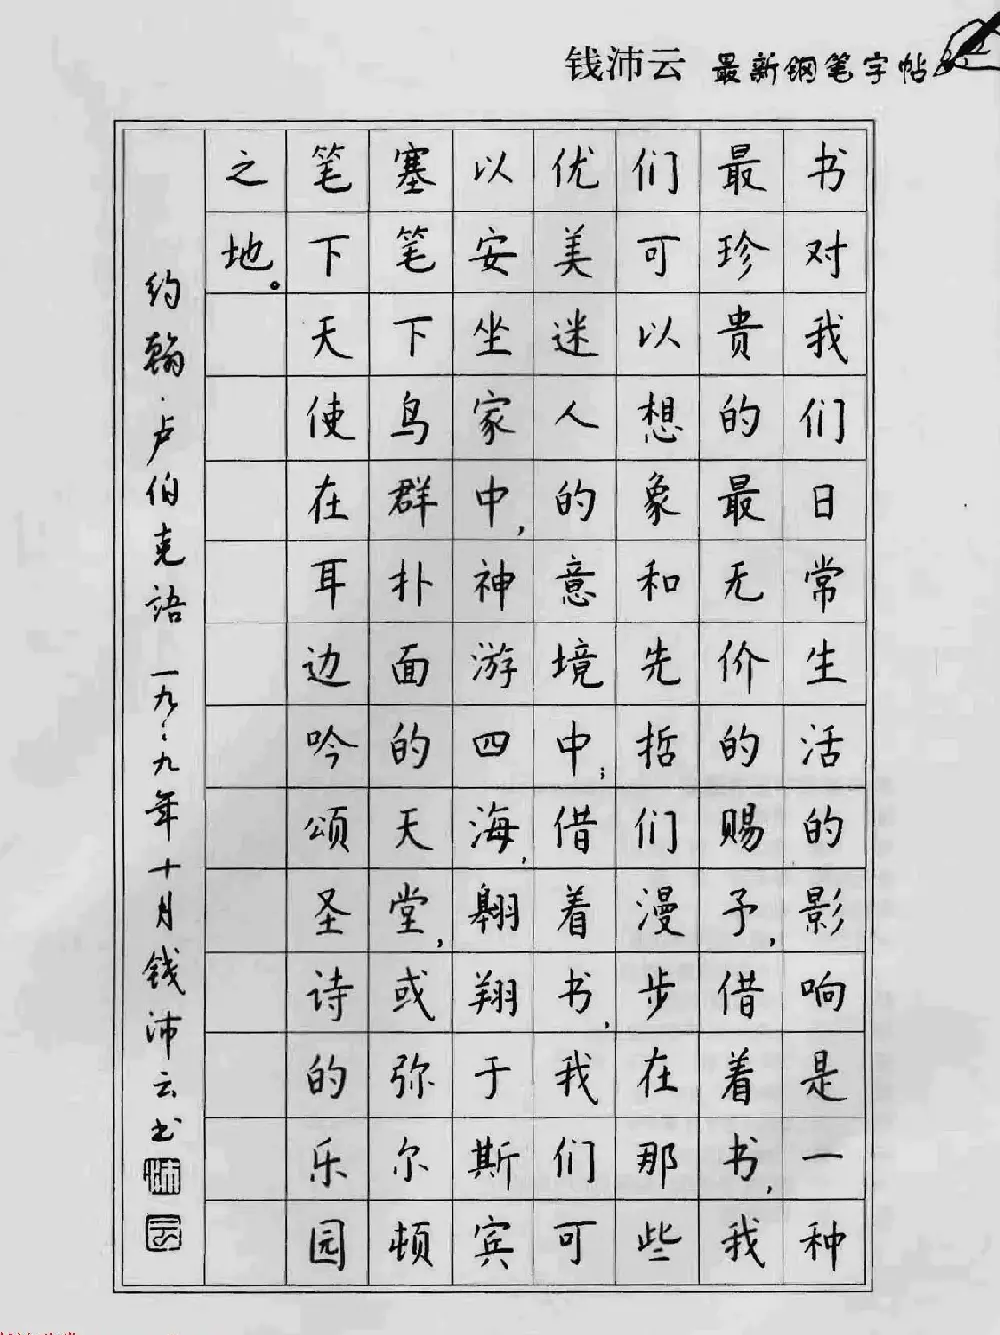 钱沛云 最新钢笔字帖
书对我们日常生活的影响是一种
最珍贵的最无价的赐予,借着书,我
们可以想象和先哲们漫步在那些
优美迷人的意境中;借着书,我们可
以安坐家中,神游四海,翱翔于斯宾
塞笔下鸟群扑面的天堂,或弥尔顿
笔下天使在耳边吟颂圣诗的乐园
之地。
约翰·卢伯克语 一九八九年十月钱沛云书